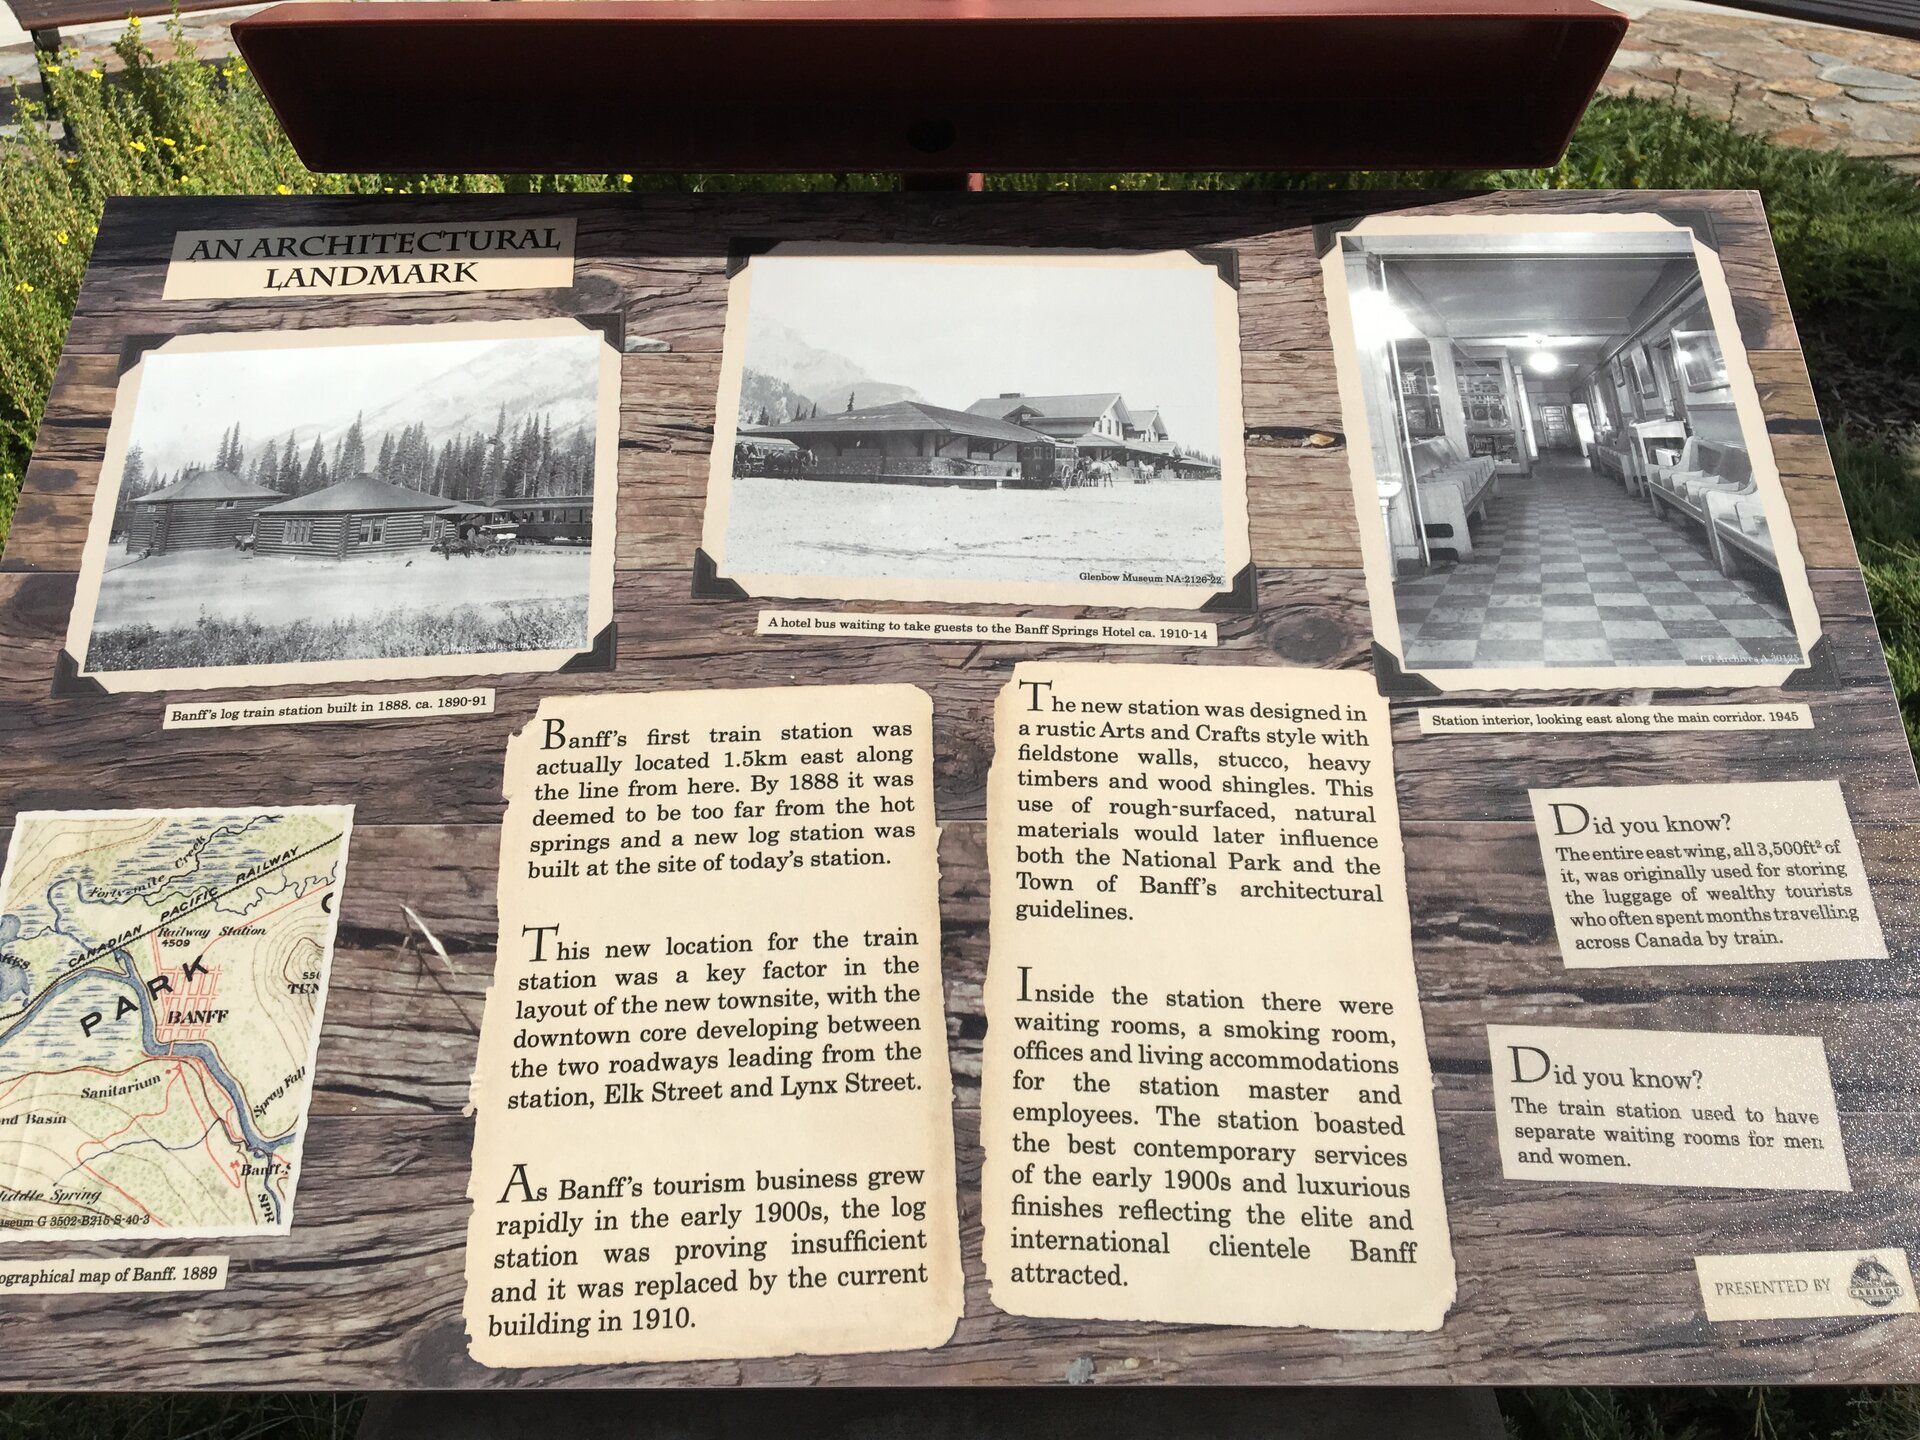 AN ARCHITECTURAL
LANDMARK
Glenbow Museum NA-2126-22
CP Archives A 30125
Banff's log train station built in 1888. ca. 1890-91
A hotel bus waiting to take guests to the Banff Springs Hotel ca. 1910-14
Station interior, looking east along the main corridor. 1945
Banff's first train station was
actually located 1.5km east along
the line from here. By 1888 it was
deemed to be too far from the hot
springs and a new log station was
built at the site of today's station.
This new location for the train
station was a key factor in the
layout of the new townsite, with the
downtown core developing between
the two roadways leading from the
station, Elk Street and Lynx Street.
As Banff's tourism business grew
rapidly in the early 1900s, the log
station was proving insufficient
and it was replaced by the current
building in 1910.
The new station was designed in
a rustic Arts and Crafts style with
fieldstone walls, stucco, heavy
timbers and wood shingles. This
use of rough-surfaced, natural
materials would later influence
both the National Park and the
Town of Banff's architectural
guidelines.
Inside the station there were
waiting rooms, a smoking room,
offices and living accommodations
for the station master and
employees. The station boasted
the best contemporary services
of the early 1900s and luxurious
finishes reflecting the elite and
international clientele Banff
attracted.
Did you know?
The entire east wing, all 3,500ft² of
it, was originally used for storing
the luggage of wealthy tourists
who often spent months travelling
across Canada by train.
Did you know?
The train station used to have
separate waiting rooms for men
and women.
PRESENTED BY
CARIBOU
Forty-mile Creek
CANADIAN PACIFIC RAILWAY
Railway Station
4509
PARK
BANFF
Sanitarium
Spray Fall
nd Basin
Banff S
SPR
iddle Spring
seum G 3502-B215-S-40-3
ographical map of Banff. 1889